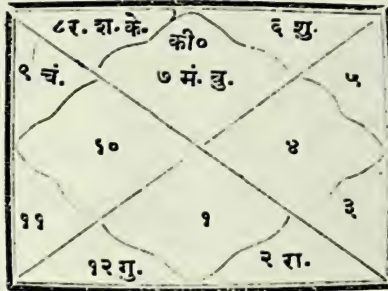 ८र. श. के.
की०
६ शु.
९ चं.
७ मं. बु.
५
१०
४
११
१
३
१२ गु.
२ रा.